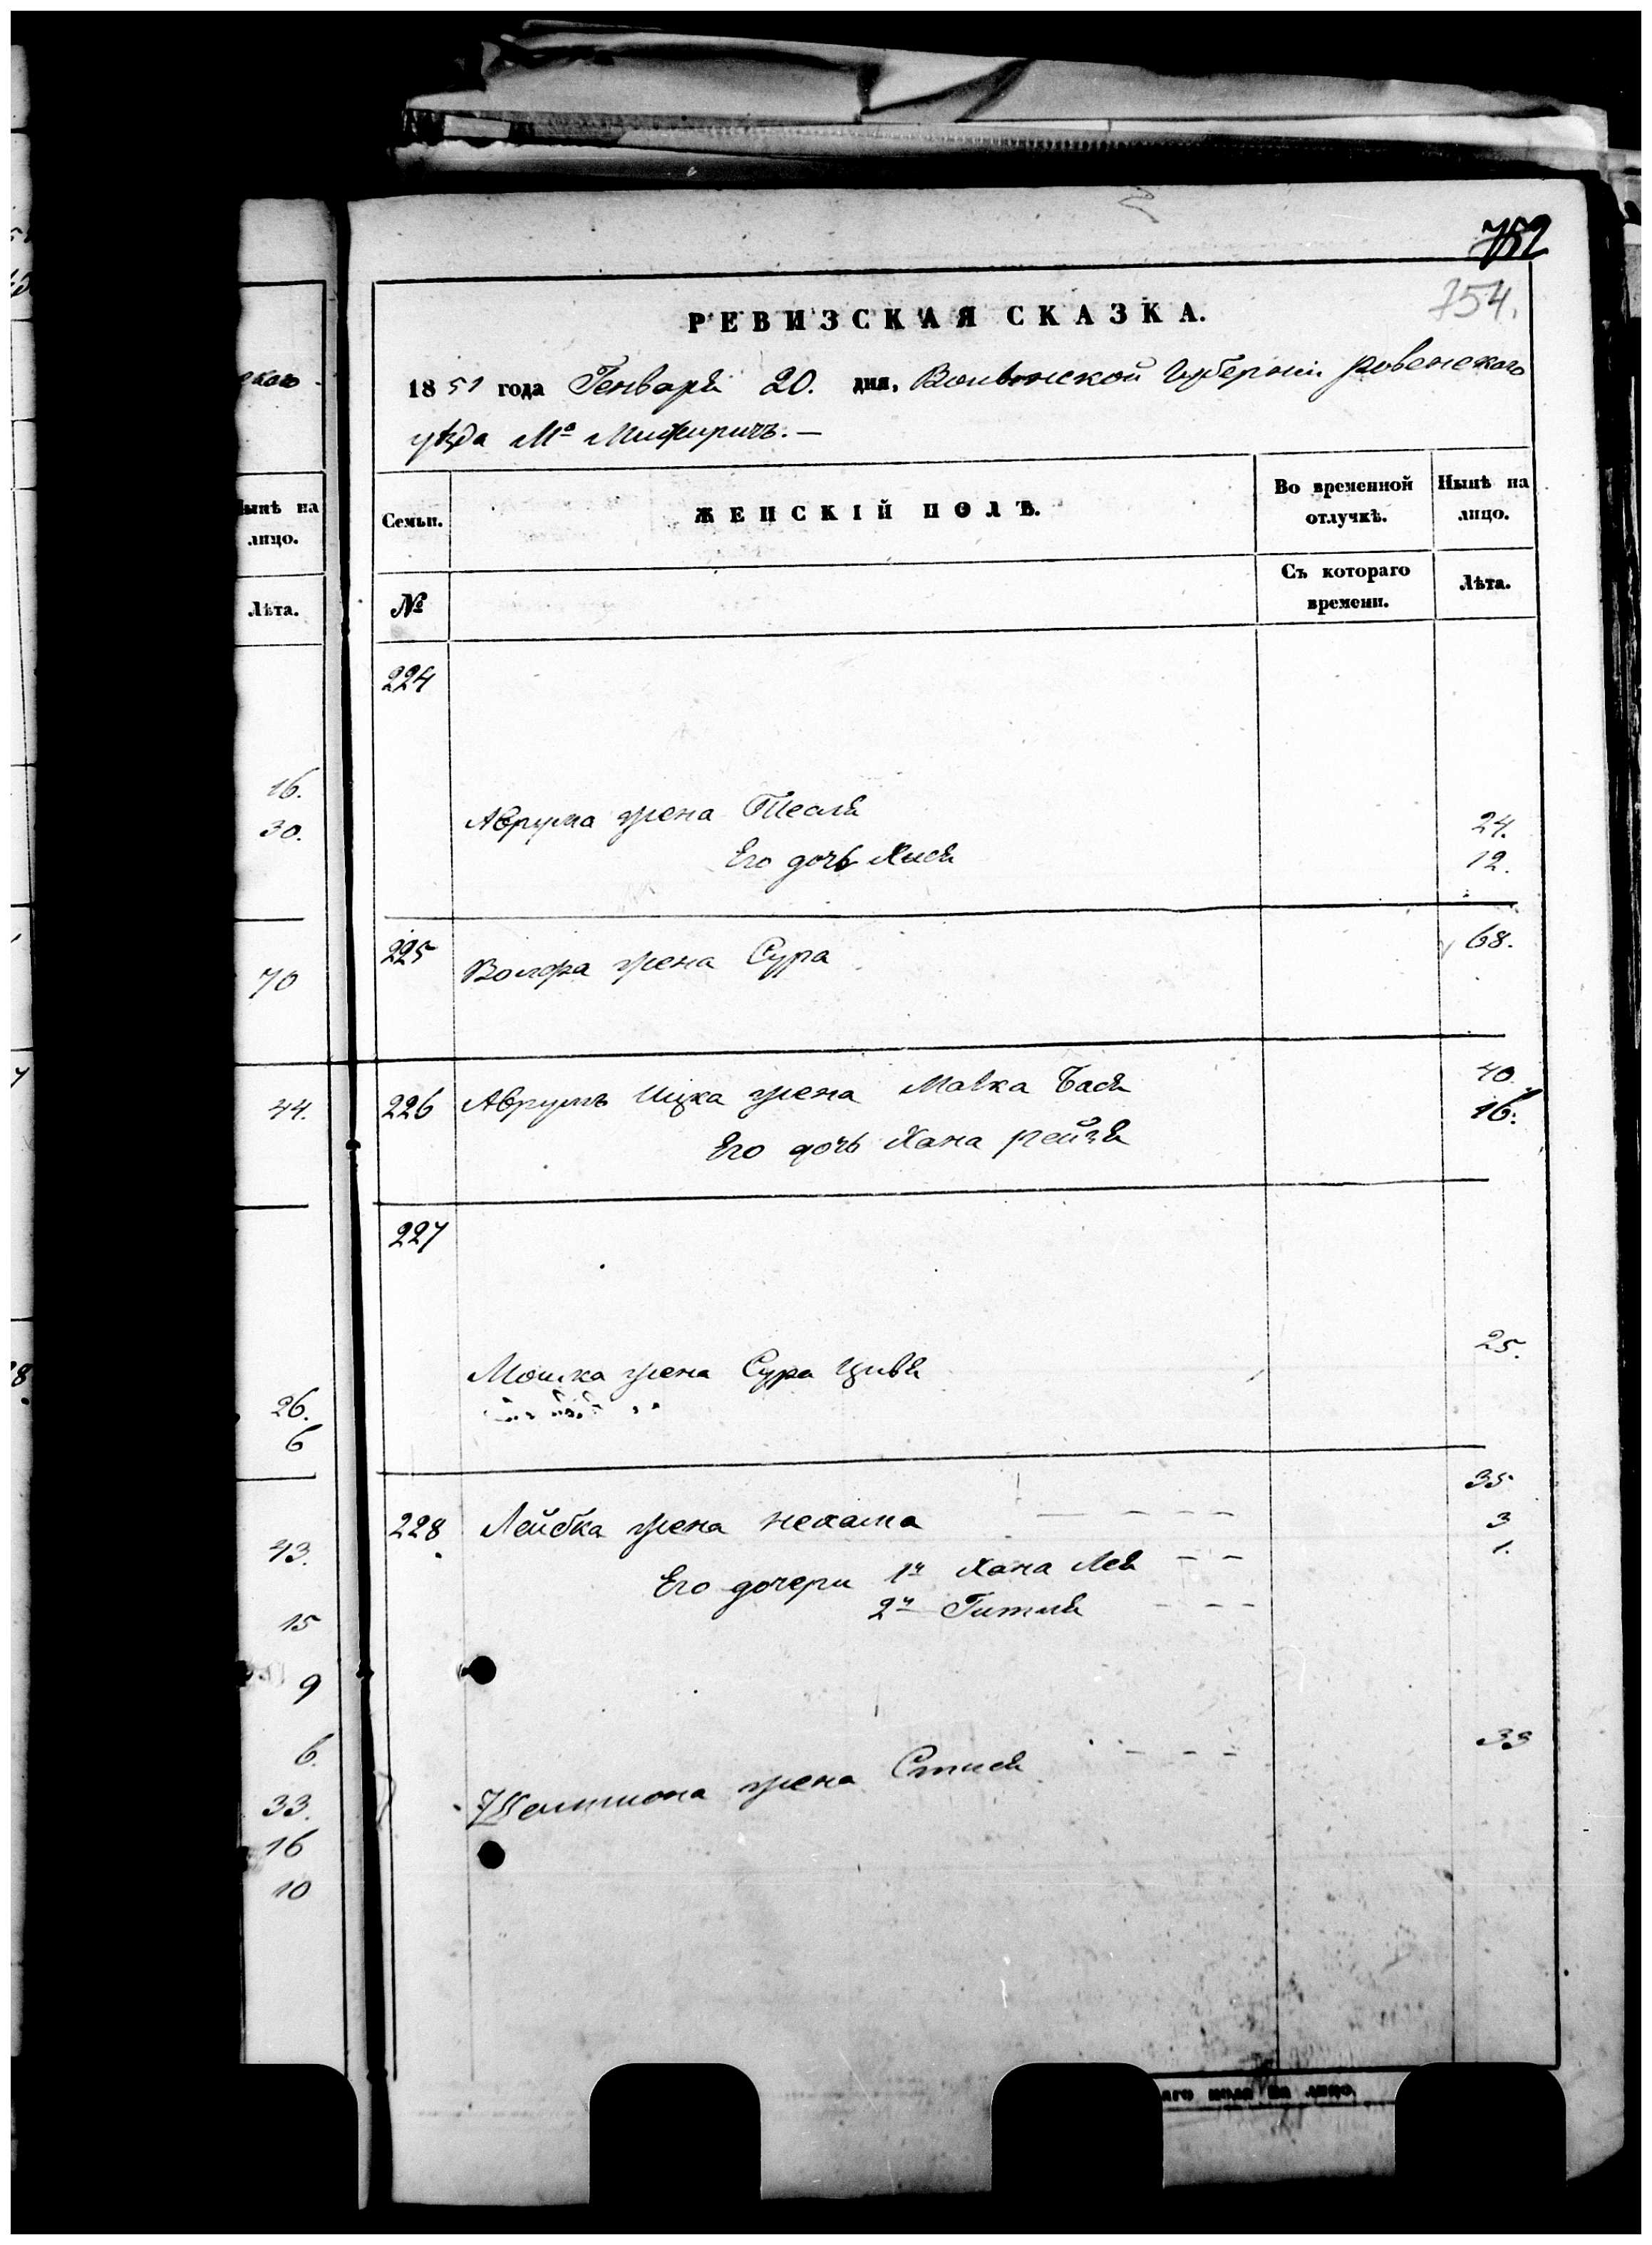 752
754.
РЕВИЗСКАЯ СКАЗКА.
1851 года Генваря 20. дня, Волынской Губерніи Ровенскаго
уѣзда М⁰ Межиричъ.—
Нынѣ на лицо.
Лѣта.
16.
30.
70
44.
26.
6
43.
15
9
6.
33.
16
10
Семьи. ЖЕНСКІЙ ПОЛЪ. Во временной отлучкѣ. Нынѣ на лицо.
№ Съ котораго времени. Лѣта.
224
Аврума жена 24.
Его дочь Хися 12.
225 Волфа жена Сура 68.
226 Аврумъ Ицка жена Малка Бася 40.
Его дочь Хана Рейзя 16.
227
Мошка жена Сура Цивя 25.
228 Лейбка жена Нехама 35
Его дочери 1я Хана Лея 3
2я Гитля 1.
жена 33